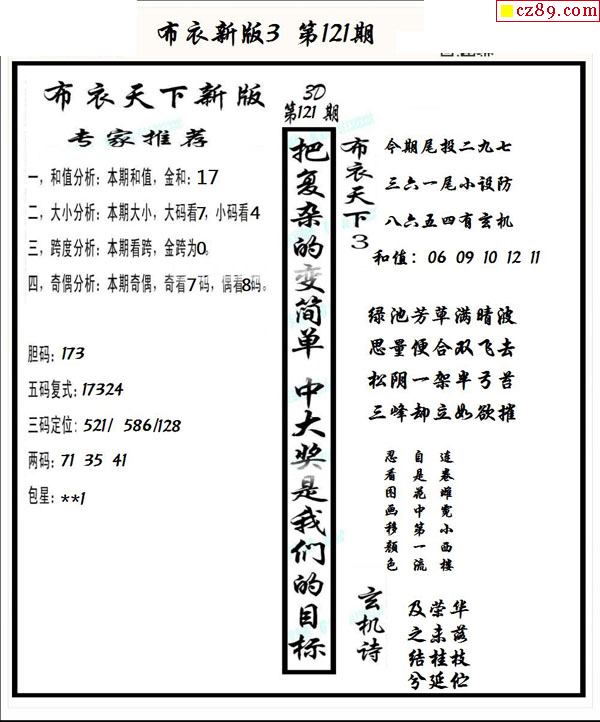 cz89.com
布衣新版3 第121期
布衣天下新版
专家推荐
一，和值分析：本期和值，金和：17
二，大小分析：本期大小，大码看7，小码看4
三，跨度分析：本期看跨，金跨为0。
四，奇偶分析：本期奇偶，奇看7码，偶看8码。
胆码：173
五码复式：17324
三码定位：521/ 586/128
两码：71 35 41
包星：**1
3D
第121期
把复杂的变简单 中大奖是我们的目标
布衣天下3
今期尾投二九七
三六一尾小设防
八六五四有玄机
和值：06 09 10 12 11
绿池芳草满晴波
思量便合双飞去
松阴一架半弓苔
三峰却立如欲摧
连卷雌霓小西楼
自是花中第一流
忍看图画移颜色
玄机诗
及荣华
之未落
结桂枝
兮延伫